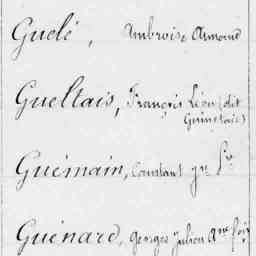 Guelé, Ambroise Armand
Gueltais, François Léon (dit
Guinetais)
Guémain, Constant Jn
Guénard, Georges Julien